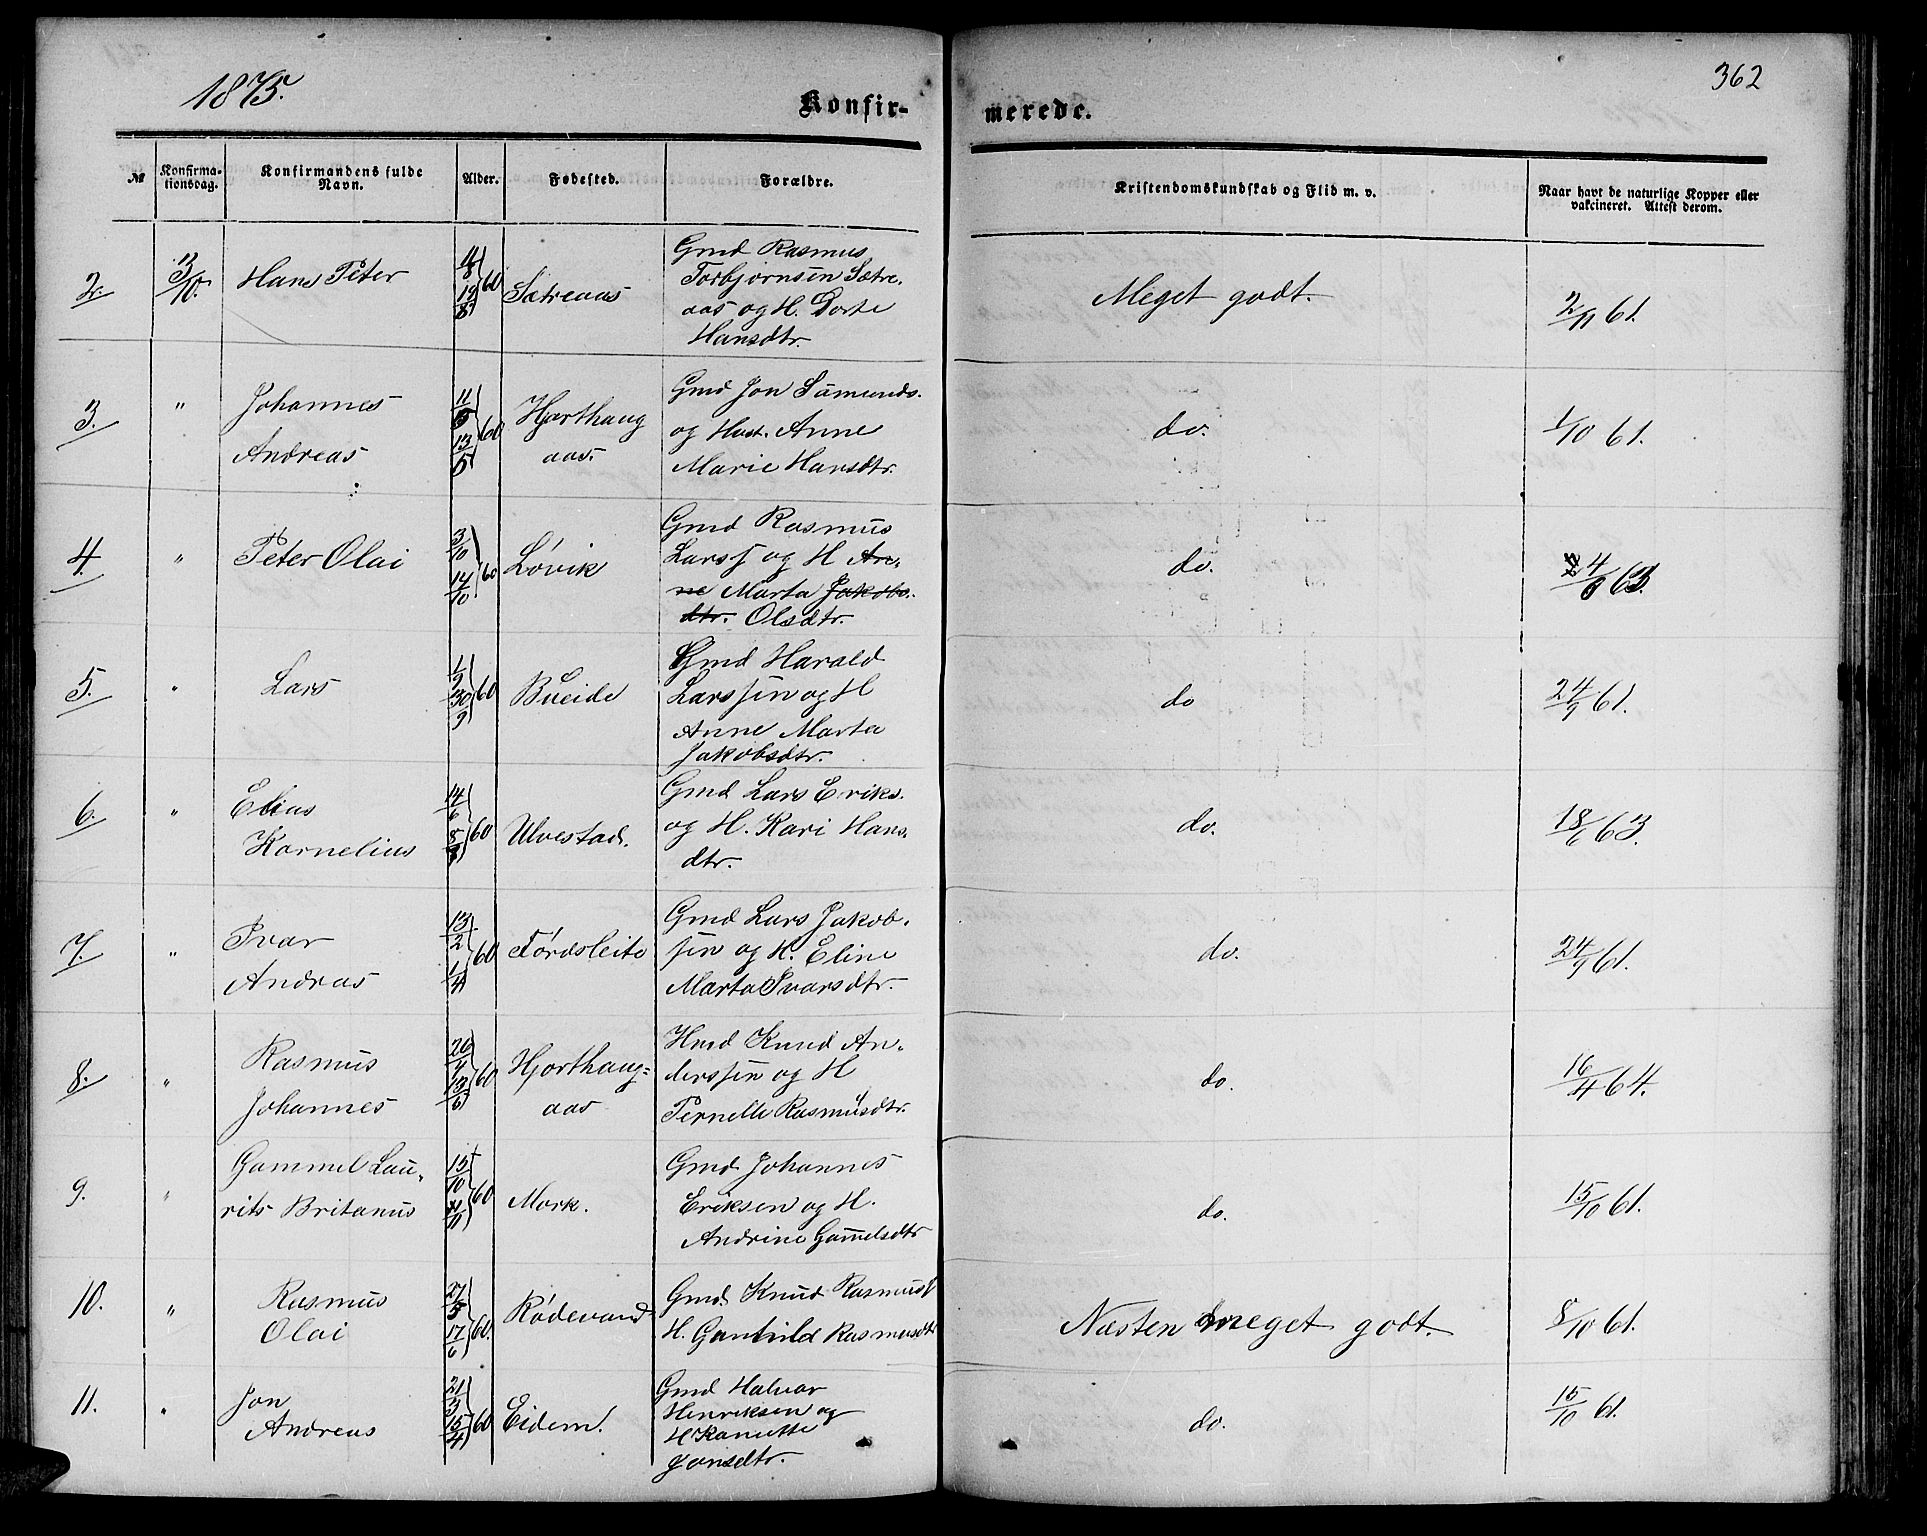 1875.
362
Konfir-
merede.
№
Konfirma-
tionsdag.
Konfirmandens fulde
Navn.
Alder.
Fødested.
Forældre.
Kristendomskundskab og Flid m. v.
Naar havt de naturlige Kopper eller
vakcineret. Attest derom.
2. 3/10. Hans Peter 19/8 60 Sætreaas
Gmd Rasmus
Torbjørnsen Sætre-
aas og H. Dorte
Hansdtr.
Meget godt. 2/11 61.
3. " Johannes
Andreas
11/5 13/5 60 Hjorthaug
aas.
Gmd Jon Samunds.
og Hust. Anne
Marie Hansdtr.
do. 1/10 61.
4. " Peter Olai 3/10 14/10 60 Løvik
Gmd Rasmus
Larss og H An-
ne Marta Jakobs.
dtr. Olsdtr.
do. 4/6 63.
5. " Lars 1/9 30/9 60 Bueide
Gmd Harald
Larssen og H
Anne Marta
Jakobsdtr.
do 24/9 61.
6. " Elias
Kornelius
14/6 8/8 60 Ulvestad.
Gmd Lars Eriks.
og H. Kari Hans
dtr.
do. 18/6 63.
7. " Ivar
Andras
13/2 1/4 60 Førdsleite
Gmd Lars Jakob-
sen og H. Eline
Marta Ivarsdtr.
do. 24/9 61.
8. " Rasmus
Johannes
26/4 13/6 60 Hjorthaug=
aas
Hmd Knud An-
derssen og H
Pernelle Rasmusdtr.
do. 16/4 64.
9. " Gammel Lau-
rits Britanus
15/10 11/11 60 Mork.
Gmd Johannes
Eriksen og H.
Andrine Gamelsdtr
do. 15/10 61.
10. " Rasmus
Olai
27/5 17/6 60. Rødevand
Gmd. Knud Rasmuss
H. Gunhild Rasmusdt
Næsten meget godt. 8/10 61.
11. " Jon
Andreas
21/3 15/4 60 Eidem.
Gmd Halvar
Henriksen og
H Kanutte
Jonsdtr.
do. 15/10 61.